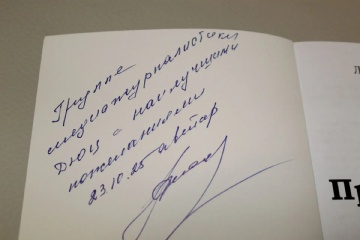 Группе
медиажурналистики
ДЮЦ с наилучшими
пожеланиями
23.10.25 автор
Л
Пр